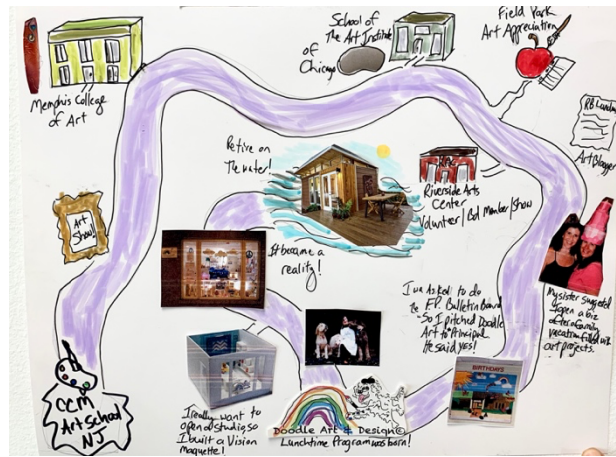 Memphis College
of Art
School of
The Art Institute
of
Chicago
Field Park
Art Appreciation
Art Blogger
Retire on
The water!
RAC
Riverside Arts
Center
Volunteer/Bd Member/Show
Art
Show!
It became a
reality!
I was Asked to do
the F.P. Bulletin Board
So I pitched Doodle
Art to Principal
He said yes!
My sister suggested
I open a biz
after a family
vacation filled with
art projects.
BIRTHDAYS
CCM
Art School
NJ
I really want to
open a studio, so
I built a Vision
maquette!
Doodle Art & Design©
Lunchtime Program was born!